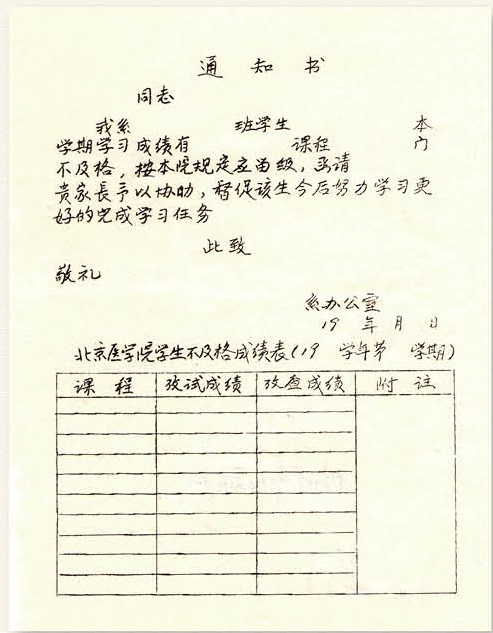 通 知 书
同志
我系 班学生 本
学期学习成绩有 课程 门
不及格，按本院规定应留级，函请
贵家長予以协助，督促该生今后努力学习更
好的完成学习任务
此致
敬礼
系办公室
19 年 月 日
北京医学院学生不及格成绩表(19 学年第 学期)
课 程 攷试成绩 攷查成绩 附 注